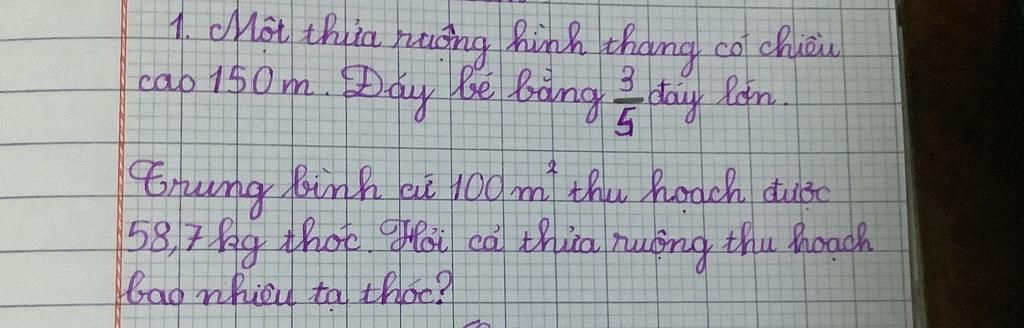 1. Một thửa ruộng hình thang có chiều
cao 150 m. Đáy bé bằng 3/5 đáy lớn.
Trung bình cứ 100 m² thu hoạch được
58,7 kg thóc. Hỏi cả thửa ruộng thu hoạch
bao nhiêu tạ thóc?